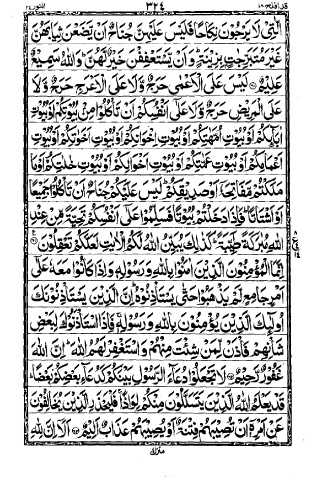 قد افلح ١٨ ٣٢٤ النور ٢٤
الّٰتِيْ لَا يَرْجُوْنَ نِكَاحًا فَلَيْسَ عَلَيْهِنَّ جُنَاحٌ اَنْ يَّضَعْنَ ثِيَابَهُنَّ
غَيْرَ مُتَبَرِّجٰتٍۭ بِزِيْنَةٍ وَاَنْ يَّسْتَعْفِفْنَ خَيْرٌ لَّهُنَّ وَاللّٰهُ سَمِيْعٌ
عَلِيْمٌ لَيْسَ عَلَى الْاَعْمٰى حَرَجٌ وَّلَا عَلَى الْاَعْرَجِ حَرَجٌ وَّلَا
عَلَى الْمَرِيْضِ حَرَجٌ وَّلَا عَلٰٓى اَنْفُسِكُمْ اَنْ تَاْكُلُوْا مِنْۢ بُيُوْتِكُمْ اَوْ بُيُوْتِ
اٰبَآئِكُمْ اَوْ بُيُوْتِ اُمَّهٰتِكُمْ اَوْ بُيُوْتِ اِخْوَانِكُمْ اَوْ بُيُوْتِ اَخَوٰتِكُمْ اَوْ بُيُوْتِ
اَعْمَامِكُمْ اَوْ بُيُوْتِ عَمّٰتِكُمْ اَوْ بُيُوْتِ اَخْوَالِكُمْ اَوْ بُيُوْتِ خٰلٰتِكُمْ اَوْ مَا
مَلَكْتُمْ مَّفَاتِحَهٗٓ اَوْ صَدِيْقِكُمْ لَيْسَ عَلَيْكُمْ جُنَاحٌ اَنْ تَاْكُلُوْا جَمِيْعًا
اَوْ اَشْتَاتًا فَاِذَا دَخَلْتُمْ بُيُوْتًا فَسَلِّمُوْا عَلٰٓى اَنْفُسِكُمْ تَحِيَّةً مِّنْ عِنْدِ
اللّٰهِ مُبٰرَكَةً طَيِّبَةً كَذٰلِكَ يُبَيِّنُ اللّٰهُ لَكُمُ الْاٰيٰتِ لَعَلَّكُمْ تَعْقِلُوْنَ
اِنَّمَا الْمُؤْمِنُوْنَ الَّذِيْنَ اٰمَنُوْا بِاللّٰهِ وَرَسُوْلِهٖ وَاِذَا كَانُوْا مَعَهٗ عَلٰٓى
اَمْرٍ جَامِعٍ لَّمْ يَذْهَبُوْا حَتّٰى يَسْتَاْذِنُوْهُ اِنَّ الَّذِيْنَ يَسْتَاْذِنُوْنَكَ
اُولٰٓئِكَ الَّذِيْنَ يُؤْمِنُوْنَ بِاللّٰهِ وَرَسُوْلِهٖ فَاِذَا اسْتَاْذَنُوْكَ لِبَعْضِ
شَاْنِهِمْ فَاْذَنْ لِّمَنْ شِئْتَ مِنْهُمْ وَاسْتَغْفِرْ لَهُمُ اللّٰهَ اِنَّ اللّٰهَ
غَفُوْرٌ رَّحِيْمٌ لَا تَجْعَلُوْا دُعَآءَ الرَّسُوْلِ بَيْنَكُمْ كَدُعَآءِ بَعْضِكُمْ بَعْضًا
قَدْ يَعْلَمُ اللّٰهُ الَّذِيْنَ يَتَسَلَّلُوْنَ مِنْكُمْ لِوَاذًا فَلْيَحْذَرِ الَّذِيْنَ يُخَالِفُوْنَ
عَنْ اَمْرِهٖٓ اَنْ تُصِيْبَهُمْ فِتْنَةٌ اَوْ يُصِيْبَهُمْ عَذَابٌ اَلِيْمٌ اَلَآ اِنَّ لِلّٰهِ